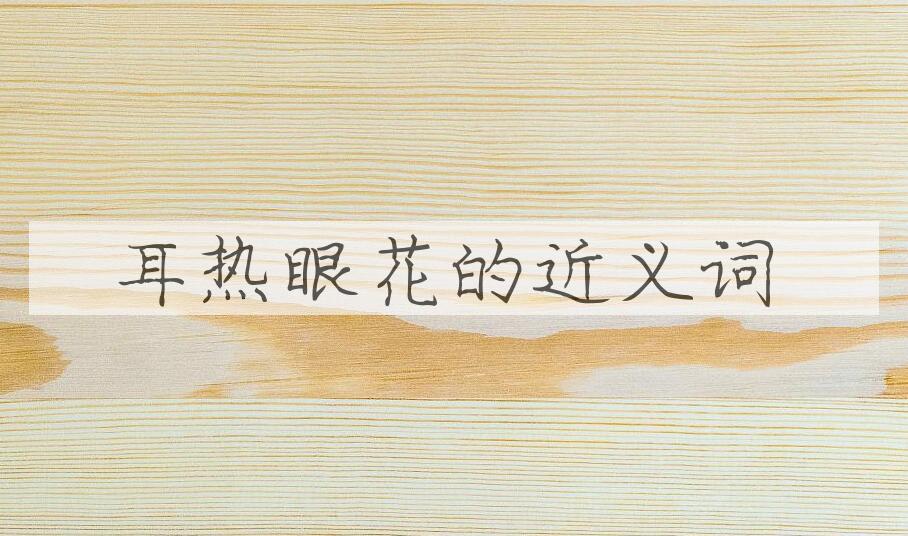 耳热眼花的近义词